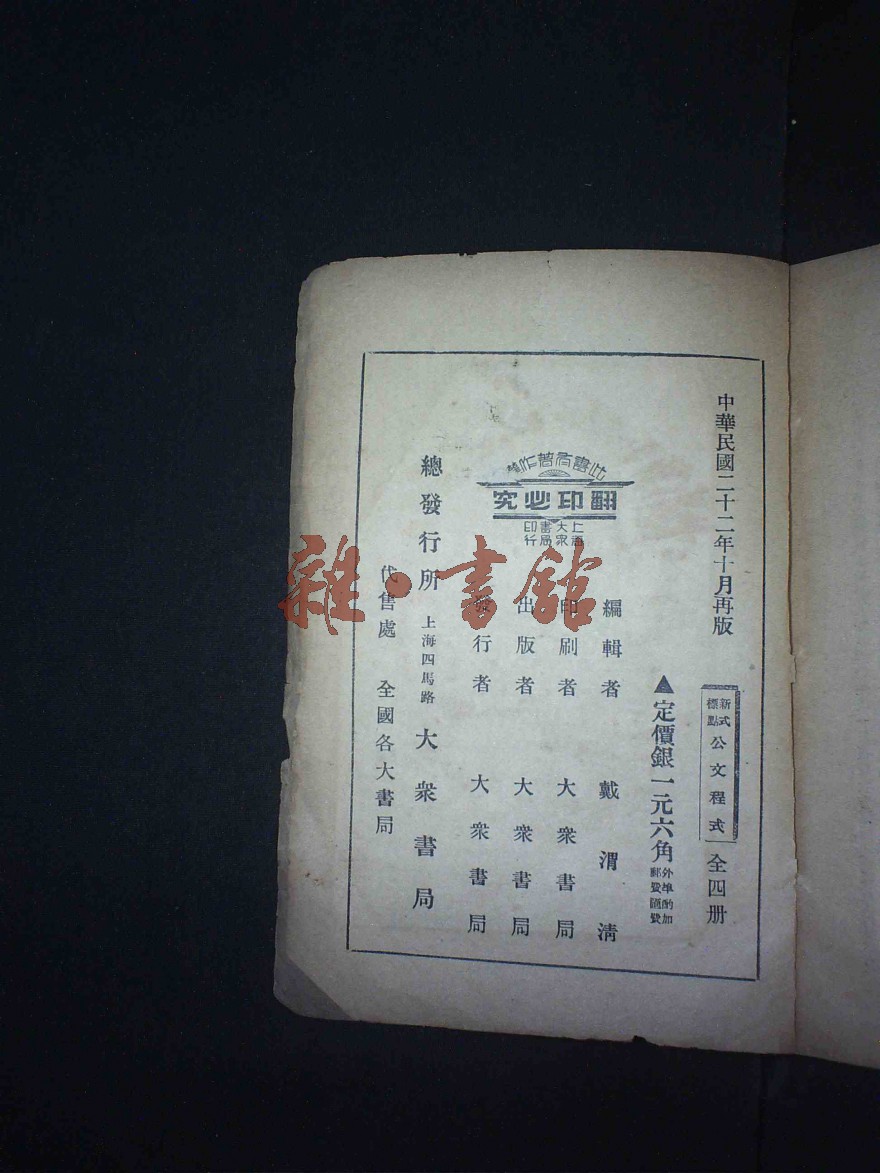 中華民國二十二年十月再版
新式標點
公文程式
全四册
▲定價銀一元六角
外埠酌加
郵費匯費
編輯者 戴渭清
印刷者 大衆書局
出版者 大衆書局
發行者 大衆書局
此書有著作權
翻印必究
上海大衆書局印行
總發行所 上海四馬路 大衆書局
代售處 全國各大書局
雜·書館